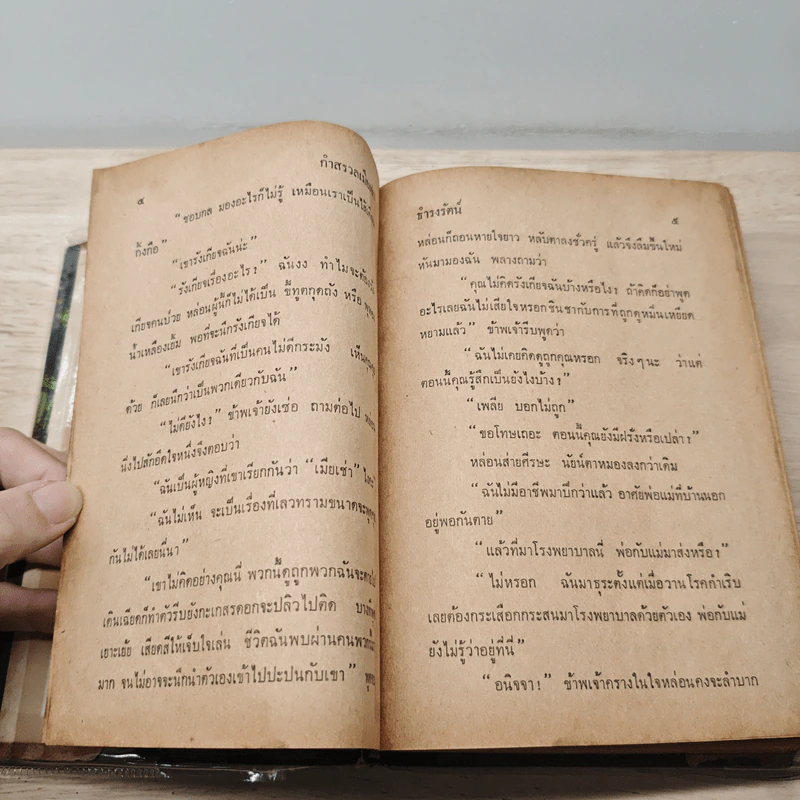 ๔
กำสรวลเมีย
“ชอบกล มองอะไรก็ไม่รู้ เหมือนเราเป็นไส้เดือน
กิ้งกือ”
“เขารังเกียจฉันน่ะ”
“รังเกียจเรื่องอะไร?” ฉันงง ทำไมจะต้อง
เกียจคนป่วย หล่อนผู้นี้ก็ไม่ได้เป็น ขี้ทูตกุดถัง หรือ
น้ำเหลืองเยิ้ม พอที่จะนึกรังเกียจได้
“เขารังเกียจฉันที่เป็นคนไม่ดีกระมัง เห็น
ด้วย ก็เลยนึกว่าเป็นพวกเดียวกับฉัน”
“ไม่ดียังไง?” ข้าพเจ้ายังเซ่อ ถามต่อไป
นิ่งไปสักอึดใจหนึ่งจึงตอบว่า
“ฉันเป็นผู้หญิงที่เขาเรียกกันว่า “เมียเช่า”
“ฉันไม่เห็น จะเป็นเรื่องที่เลวทรามขนาดจะ
กันไม่ได้เลยนี่นา”
“เขาไม่คิดอย่างคุณนี่ พวกนี้ดูถูกพวกฉันจะตาย
เดินเฉียดก็ทำตัวรีบยังกะเกสรดอกจะปลิวไปติด
เยาะเย้ย เสียดสีให้เจ็บใจเล่น ชีวิตฉันพบผ่านคนพวกนี้
มาก จนไม่อาจจะนึกนำตัวเองเข้าไปปะปนกับเขา”
ธำรงรัตน์
๕
หล่อนก็ถอนหายใจยาว หลับตาลงชั่วครู่ แล้วจึงลืมขึ้นใหม่
หันมามองฉัน พลางถามว่า
“คุณไม่คิดรังเกียจฉันบ้างหรือไง? ถ้าคิดก็อย่าพูด
อะไรเลยฉันไม่เสียใจหรอกชินชากับการที่ถูกดูหมิ่นเหยียด
หยามแล้ว” ข้าพเจ้ารีบพูดว่า
“ฉันไม่เคยคิดดูถูกคุณหรอก จริงๆนะ ว่าแต่
ตอนนี้คุณรู้สึกเป็นยังไงบ้าง?”
“เพลีย บอกไม่ถูก”
“ขอโทษเถอะ ตอนนี้คุณยังมีฝรั่งหรือเปล่า?”
หล่อนส่ายศีรษะ นัยน์ตาหมองลงกว่าเดิม
“ฉันไม่มีอาชีพมาปีกว่าแล้ว อาศัยพ่อแม่ที่บ้านนอก
อยู่พอกันตาย”
“แล้วที่มาโรงพยาบาลนี่ พ่อกับแม่มาส่งหรือ?”
“ไม่หรอก ฉันมาธุระตั้งแต่เมื่อวานโรคกำเริบ
เลยต้องกระเสือกกระสนมาโรงพยาบาลด้วยตัวเอง พ่อกับแม่
ยังไม่รู้ว่าอยู่ที่นี่”
“อนิจจา!” ข้าพเจ้าครางในใจหล่อนคงจะลำบาก